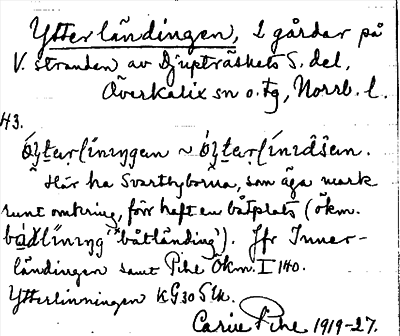 Ytterländingen, 2 gårdar på
V. stranden av Djupträskets S. del,
Överkalix sn o. tg, Norrb. l.
43.
Här ha Svartbyborna, som äga mark
runt omkring, förr haft en båtplats (ökm.
'båtländing'). Jfr Inner-
ländingen samt Pihl Ökm. I 140.
Ytterlinningen KG30 Slk.
Carin Pihl 1919-27.